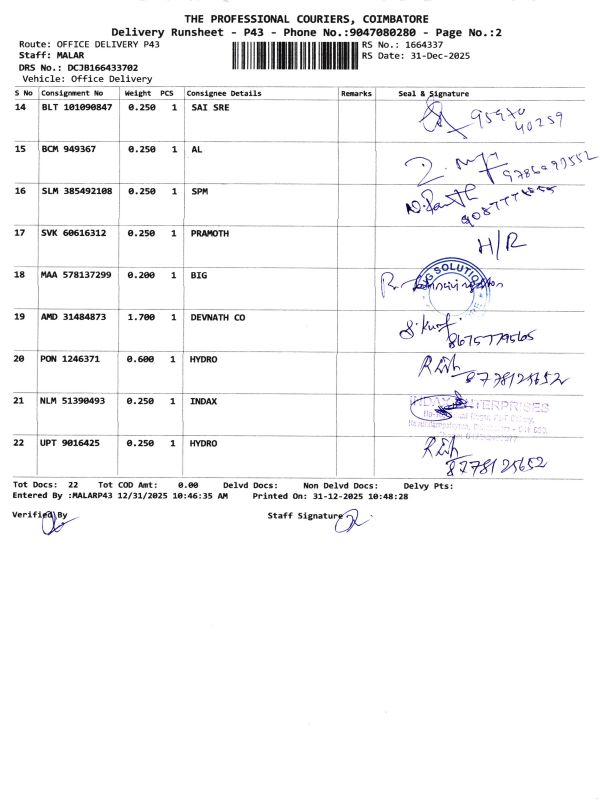 THE PROFESSIONAL COURIERS, COIMBATORE
Delivery Runsheet - P43 - Phone No.:9047080280 - Page No.:2
Route: OFFICE DELIVERY P43 RS No.: 1664337
Staff: MALAR RS Date: 31-Dec-2025
DRS No.: DCJB166433702
Vehicle: Office Delivery
S No Consignment No Weight PCS Consignee Details Remarks Seal & Signature
14 BLT 101090847 0.250 1 SAI SRE 95970
40259
15 BCM 949367 0.250 1 AL
16 SLM 385492108 0.250 1 SPM
17 SVK 60616312 0.250 1 PRAMOTH H/R
18 MAA 578137299 0.200 1 BIG SOLUTION
19 AMD 31484873 1.700 1 DEVNATH CO
8675779565
20 PON 1246371 0.600 1 HYDRO
8778125652
21 NLM 51390493 0.250 1 INDAX INDAX ENTERPRISES
22 UPT 9016425 0.250 1 HYDRO
8778125652
Tot Docs: 22 Tot COD Amt: 0.00 Delvd Docs: Non Delvd Docs: Delvy Pts:
Entered By :MALARP43 12/31/2025 10:46:35 AM Printed On: 31-12-2025 10:48:28
Verified By Staff Signature